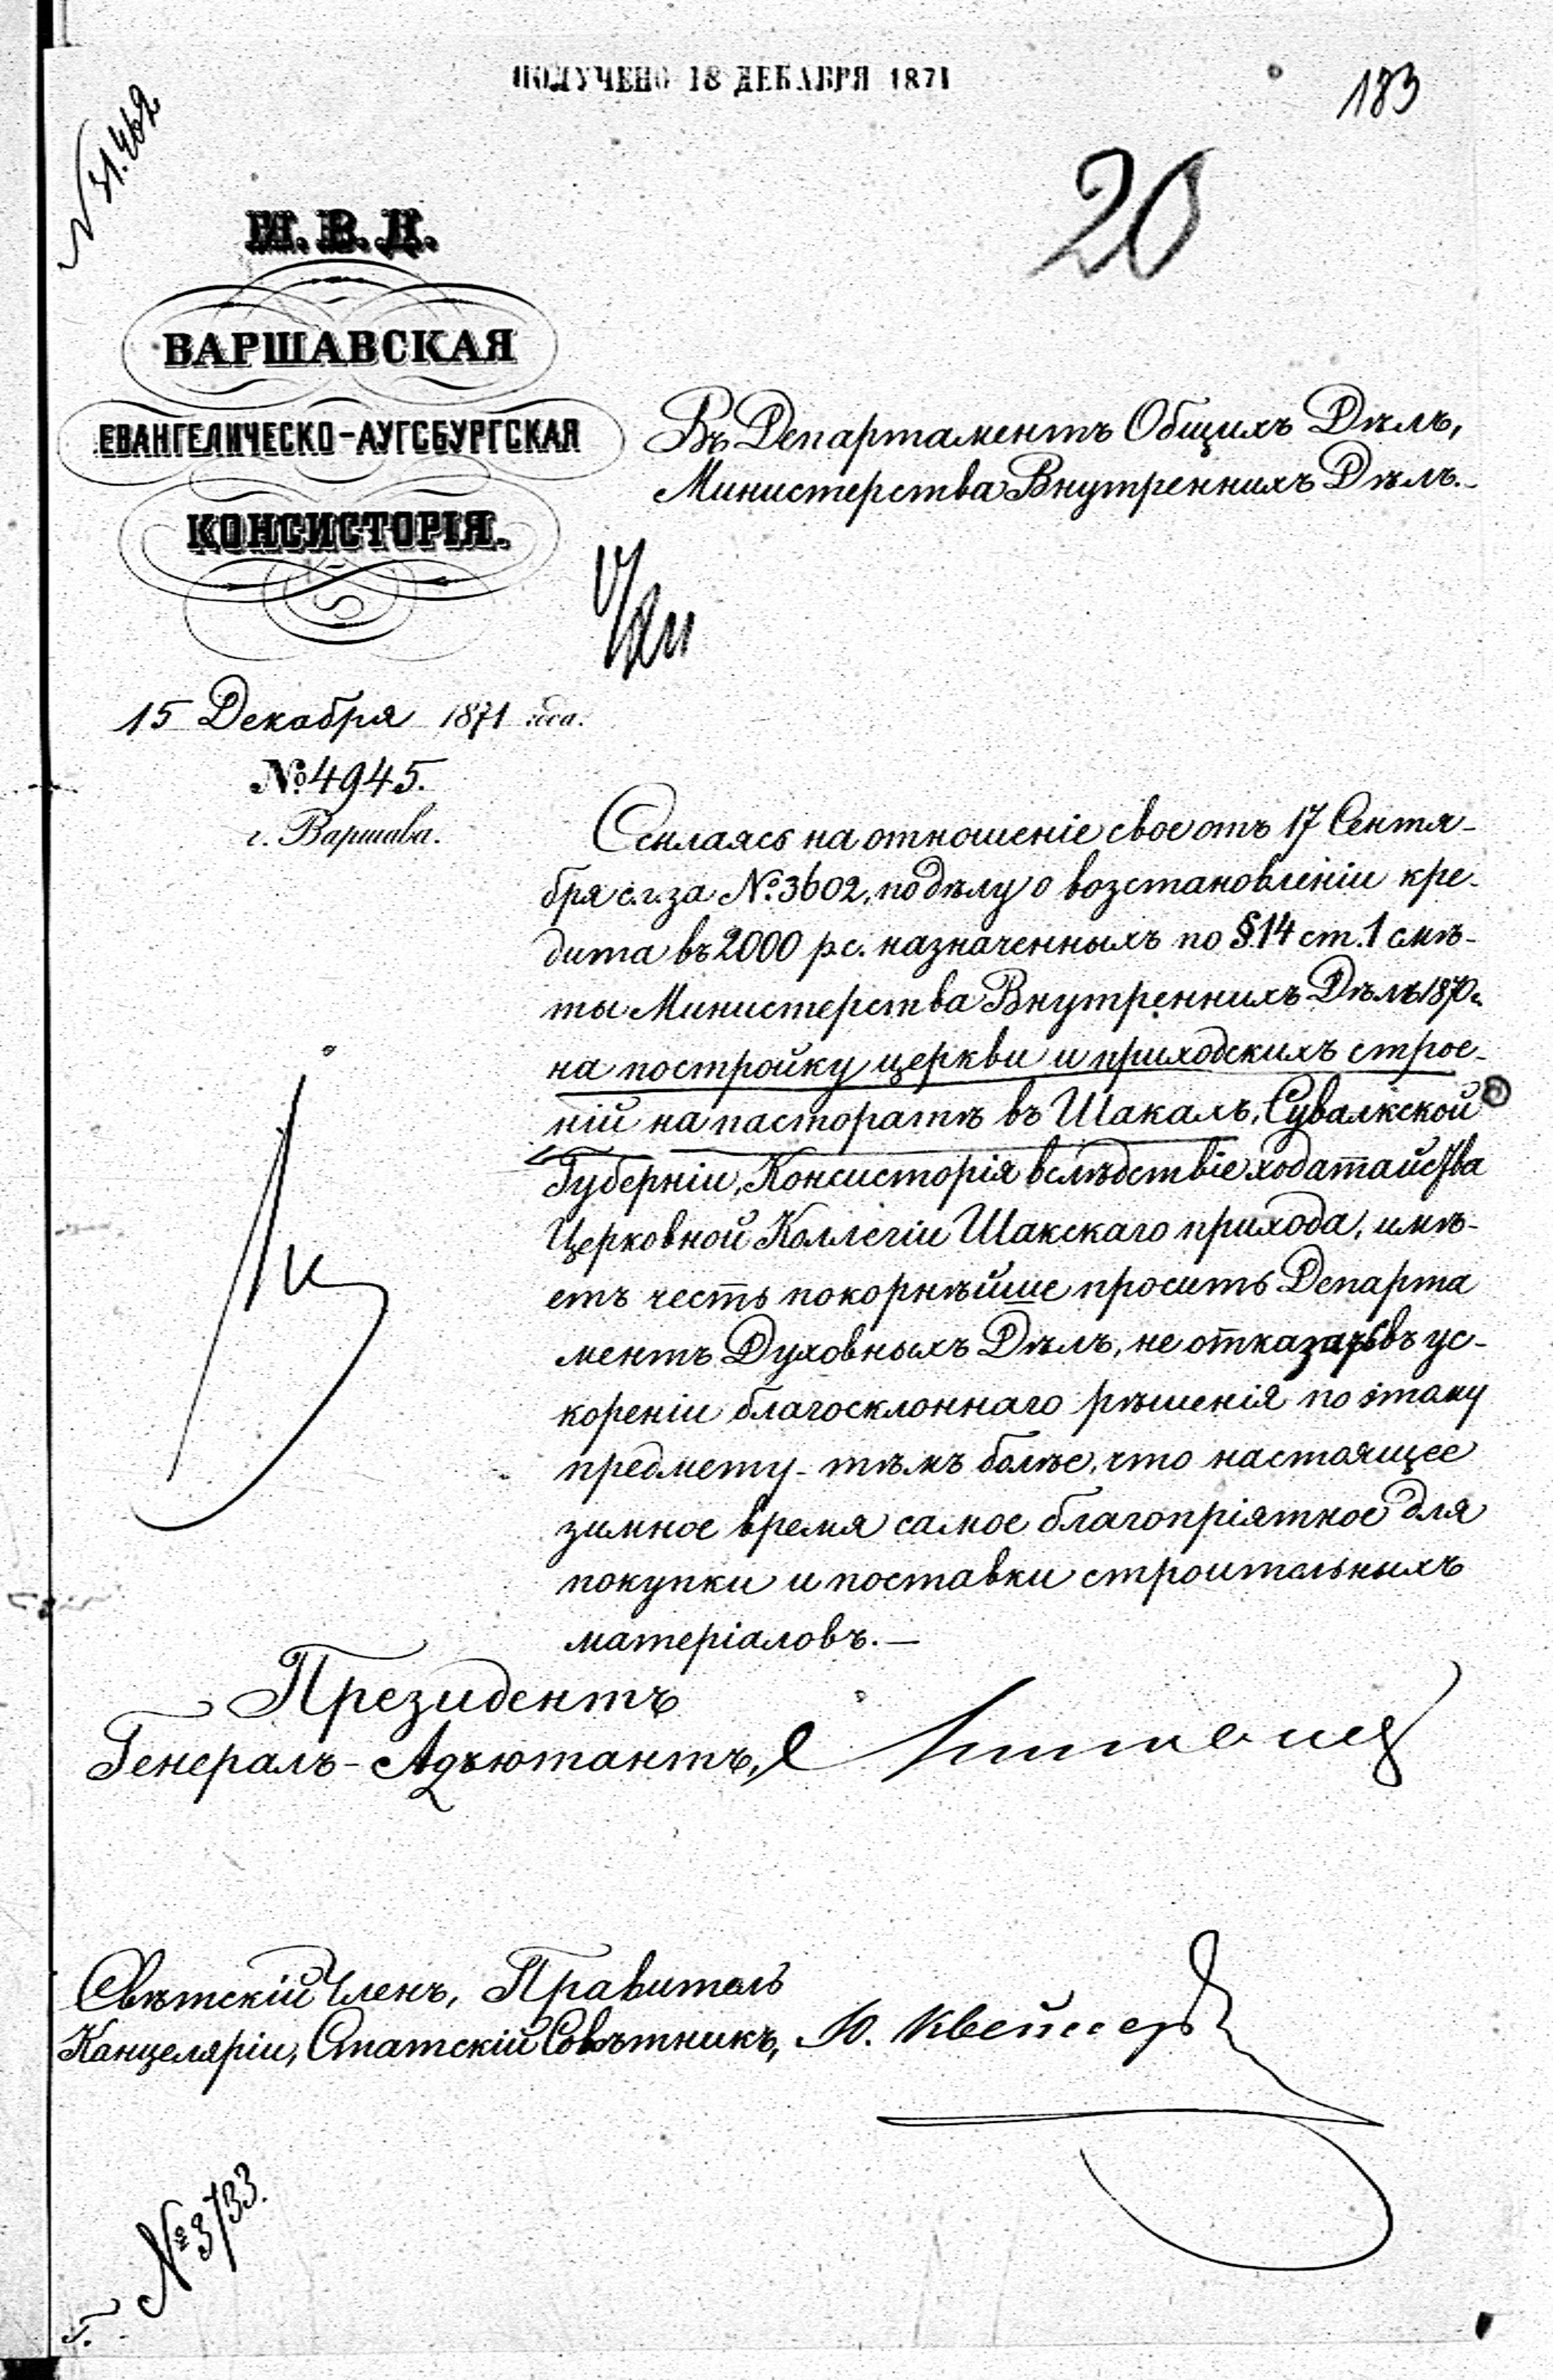 ПОЛУЧЕНО 18 ДЕКАБРЯ 1871
183
20
М. В. Д.
ВАРШАВСКАЯ
ЕВАНГЕЛИЧЕСКО-АУГСБУРГСКАЯ
КОНСИСТОРІЯ.
Въ Департаментъ Общихъ Дѣлъ,
Министерства Внутреннихъ Дѣлъ.-
15 Декабря 1871 года.
№ 4945.
г. Варшава.
Ссылаясь на отношеніе свое отъ 17 Сентя-
бря с.г. за №. 3602, по дѣлу о возстановленіи кре-
дита въ 2000 р.с. назначенныхъ по §.14 ст.1 смѣ-
ты Министерства Внутреннихъ Дѣлъ 1870 г.
на постройку церкви и приходскихъ строе-
ній на пасторатѣ въ Шакахъ, Сувалкской
Губерніи, Консисторія вслѣдствіе ходатайства
Церковной Коллегіи Шакскаго прихода, имѣ-
етъ честь покорнѣйше просить Департа
ментъ Духовныхъ Дѣлъ, не отказать въ ус-
кореніи благосклоннаго рѣшенія по этому
предмету - тѣмъ болѣе, что настоящее
зимное время самое благопріятное для
покупки и поставки строительныхъ
матеріаловъ. —
Президентъ
Генералъ-Адъютантъ,
Свѣтскій Членъ, Правитель
Канцеляріи, Статскій Совѣтникъ,
№ 3733.